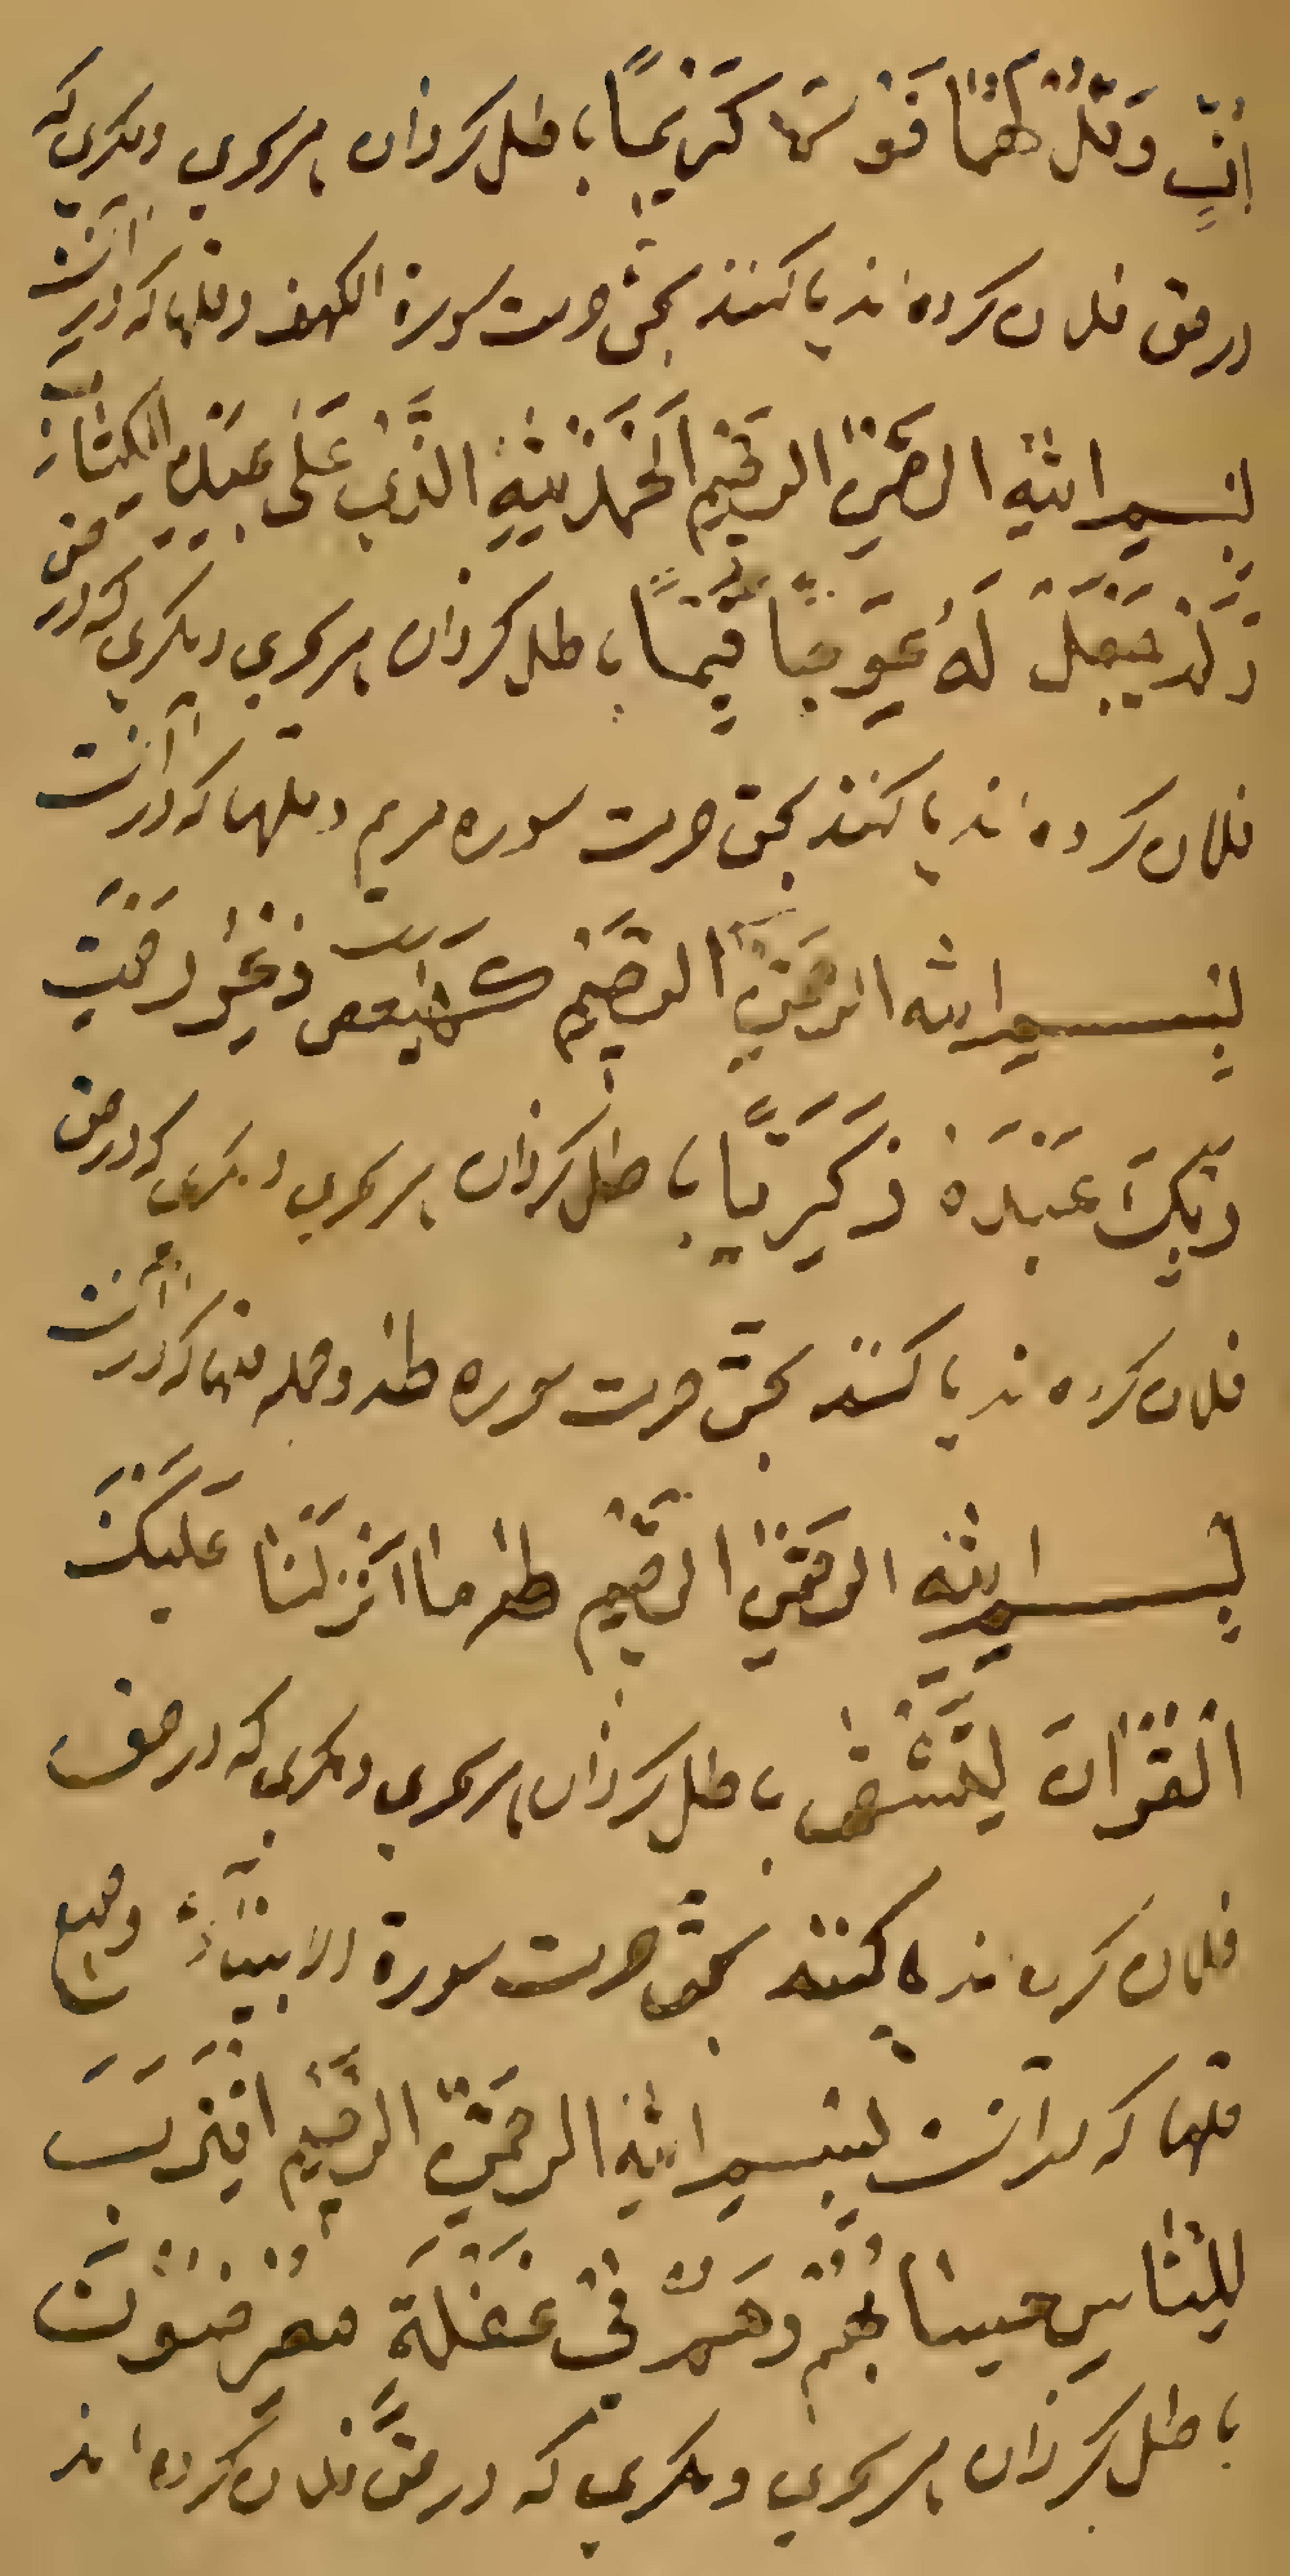 اُفٍّ وَقُلْ لَهُمَا قَوْلًا كَرِيمًا باطل كردان هر سحرى ومكرى كه
در حق فلان كرده اند يا كنند بحق حرمت سورة الكهف وفلها كه در آنست
بِسْمِ اللهِ الرَّحْمٰنِ الرَّحِيمِ اَلْحَمْدُ لِلّٰهِ الَّذِى عَلٰى عَبْدِهِ الْكِتَابَ
وَلَمْ يَجْعَلْ لَهُ عِوَجًا قَيِّمًا باطل كردان هر سحرى ومكرى كه در حق
فلان كرده اند يا كنند بحق حرمت سوره مريم وفلها كه در آنست
بِسْمِ اللهِ الرَّحْمٰنِ الرَّحِيمِ كهيعص ذِكْرُ رَحْمَتِ
رَبِّكَ عَبْدَهُ زَكَرِيَّا باطل كردان هر سحرى ومكرى كه در حق
فلان كرده اند يا كنند بحق حرمت سوره طه وجمله فلها كه در آنست
بِسْمِ اللهِ الرَّحْمٰنِ الرَّحِيمِ طه مَا اَنْزَلْنَا عَلَيْكَ
الْقُرْاٰنَ لِتَشْقٰى باطل كردان هر سحرى ومكرى كه در حق
فلان كرده اند يا كنند بحق حرمت سورة الانبياء وجميع
فلها كه در آنست بِسْمِ اللهِ الرَّحْمٰنِ الرَّحِيمِ اقْتَرَبَ
لِلنَّاسِ حِسَابُهُمْ وَهُمْ فِى غَفْلَةٍ مُعْرِضُونَ
باطل كردان هر سحرى ومكرى كه در حق فلان كرده اند